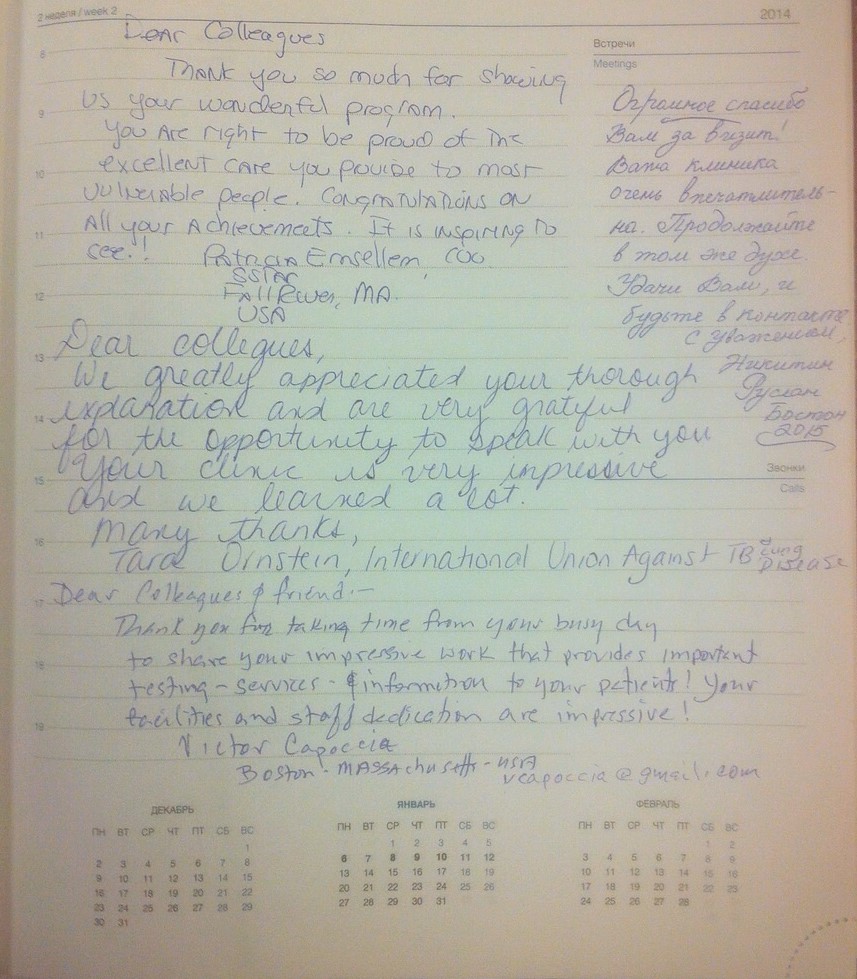 2 неделя / week 2
2014
Dear Colleagues
Thank you so much for showing
us your wonderful program.
You are right to be proud of the
excellent care you provide to most
vulnerable people. Congratulations on
all your achievements. It is inspiring to
see!!
Patricia Emsellem, COO
SSTAR
Fall River, MA.
USA
Встречи
Meetings
Огромное спасибо
Вам за визит!
Ваша клиника
очень впечатлитель-
на. Продолжайте
в том же духе.
Удачи Вам, и
будьте в контакте
С уважением,
Никитин
Руслан
Бостон
2015
Dear collegues,
We greatly appreciated your thorough
explanation and are very grateful
for the opportunity to speak with you
Your clinic is very impressive
and we learned a lot.
Many thanks,
Tara Ornstein, International Union Against TB & Lung
Disease
Звонки
Calls
Dear Colleagues & friend:-
Thank you for taking time from your busy day
to share your impressive work that provides important
testing - services - & information to your patients! Your
facilities and staff dedication are impressive!
Victor Capoccia
Boston - Massachusetts - USA
vcapoccia@gmail.com
8
9
10
11
12
13
14
15
16
17
18
19
ДЕКАБРЬ
ПН ВТ СР ЧТ ПТ СБ ВС
1
2 3 4 5 6 7 8
9 10 11 12 13 14 15
16 17 18 19 20 21 22
23 24 25 26 27 28 29
30 31
ЯНВАРЬ
ПН ВТ СР ЧТ ПТ СБ ВС
1 2 3 4 5
6 7 8 9 10 11 12
13 14 15 16 17 18 19
20 21 22 23 24 25 26
27 28 29 30 31
ФЕВРАЛЬ
ПН ВТ СР ЧТ ПТ СБ ВС
1 2
3 4 5 6 7 8 9
10 11 12 13 14 15 16
17 18 19 20 21 22 23
24 25 26 27 28